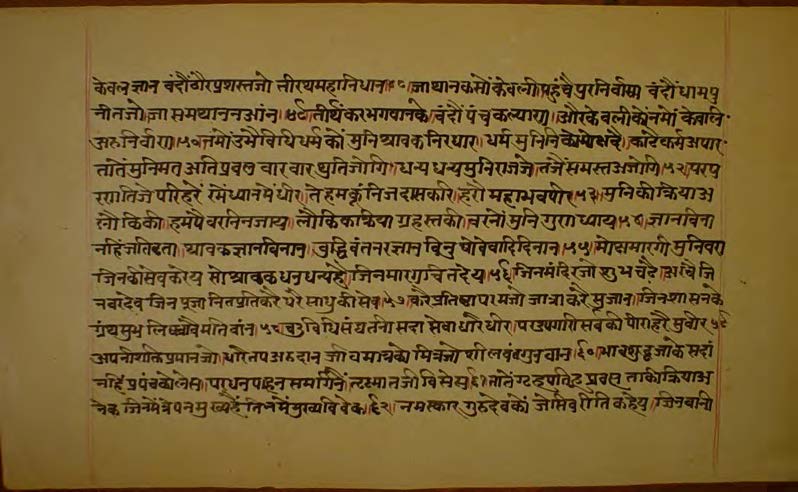 केवल ज्ञान बंदौं ठौर प्रशस्त जो तीरथ महा निधान ४८ जा थानक सों केवली पहुंचै पुर निर्वाण बंदौं धाम पु
नीत जो जा सम थान न आंन ४९ तीर्थंकर भगवान के बंदौं पंच कल्याण और केवली कों नमों केवलि
अरु निर्वाण ५० नमों उभै विधि धर्म कों मुनि श्रावक निरधार धर्म मुनिनि को मोक्ष दै काटै कर्म अपार
तातें मुनि मत अति प्रवल वार वार थुति जोगि धन्य धन्य मुनिराज जे तजैं समस्त अजोगि ५२ पर प
रणति जे परिहरें रमें ध्यान में धीर ते हम कूं निज दास करि हरौ महा भव पीर ५३ मुनि की क्रिया अ
लौकिकी हम पै वरनि न जाय लौकिक क्रिया ग्रहस्त की वरनों मुनि गुरा ध्याय ५४ ज्ञान विना
नहिं जति श्रावक ज्ञान विना न बुद्धिवंत नर ज्ञान विनु षोवे वादि दिनान ५५ मोक्ष मारगी मुनिवरा
जिन की सेव करेय सो श्रावक धन धन्य है जिन मारग चित देय ५६ जिन मंदिर जो शुभ रचै अरचै जि
नवर देव जिन पूजा नित प्रति करै करै साधु की सेव ५७ करै प्रतिष्ठा परम जो जात्रा करै सुजान जिन शासन के
ग्रंथ सुभ लिखवावै मति वांन ५८ चउ विधि संघ तनी सदा सेवा धारै धीर पर उपगारी सव की पीरा हरै सु वीर ५९
अपनी शक्ति प्रमान जो धारै तप अरु दान जीव मात्र को मित्र जो शीलवंत गुनवान ६० भाव शुद्ध जाके सदां
नहिं प्रपंच को लेस पर धन पाहन सम गिनें तृष्णा विसेस ६१ तातें प्रवल ताकी क्रिया अ
नेक जिन में त्रेपन मुख्य हैं तिन में मुख्य विवेक ६२ नमस्कार गुरु देव कों जे सव रीति कहेय जिनवानी